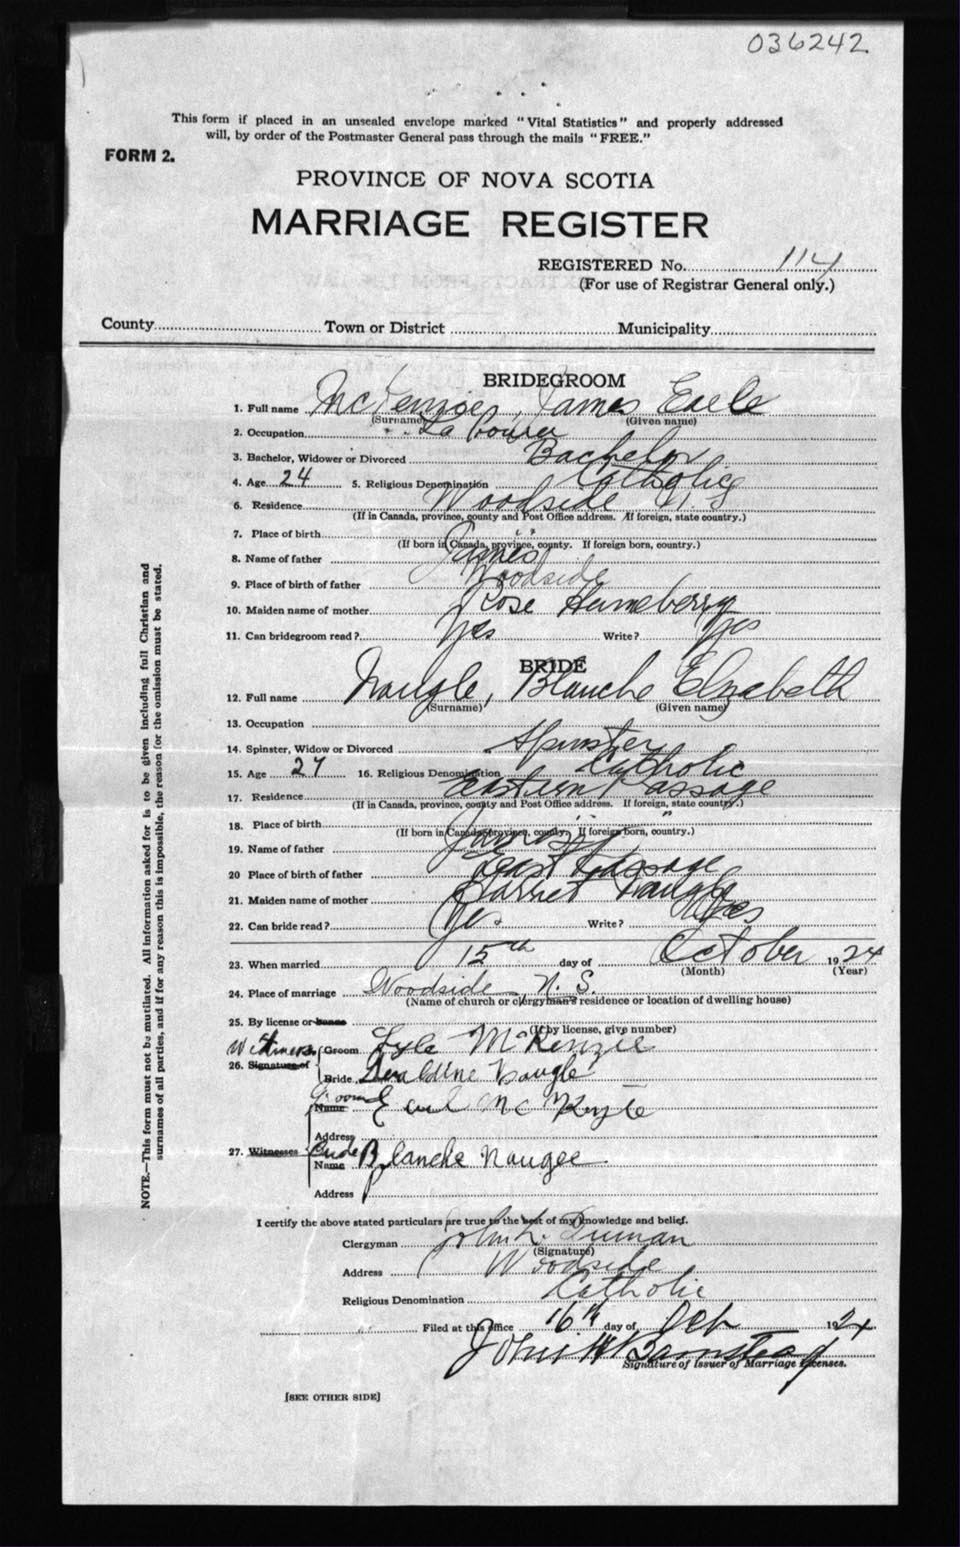 036242
This form if placed in an unsealed envelope marked "Vital Statistics" and properly addressed
will, by order of the Postmaster General pass through the mails "FREE."
FORM 2.
PROVINCE OF NOVA SCOTIA
MARRIAGE REGISTER
REGISTERED No. 114
(For use of Registrar General only.)
County Town or District Municipality
BRIDEGROOM
1. Full name McKenzie, James Earle
(Surname) (Given name)
2. Occupation Labourer
3. Bachelor, Widower or Divorced Bachelor
4. Age 24 5. Religious Denomination Catholic
6. Residence Woodside N.S.
(If in Canada, province, county and Post Office address. If foreign, state country.)
7. Place of birth " "
(If born in Canada, province, county. If foreign born, country.)
8. Name of father James
9. Place of birth of father Woodside
10. Maiden name of mother Rose
11. Can bridegroom read? Yes Write? Yes
BRIDE
12. Full name Naugle, Blanche Elizabeth
(Surname) (Given name)
13. Occupation
14. Spinster, Widow or Divorced Spinster
15. Age 27 16. Religious Denomination Catholic
17. Residence Eastern Passage
(If in Canada, province, county and Post Office address. If foreign, state country.)
18. Place of birth " "
(If born in Canada, province, county. If foreign born, country.)
19. Name of father James
20 Place of birth of father East Passage
21. Maiden name of mother Harriet Naugle
22. Can bride read? Yes Write? Yes
23. When married 15th day of October 1924
(Month) (Year)
24. Place of marriage Woodside N.S.
(Name of church or clergyman's residence or location of dwelling house)
25. By license or banns
(If by license, give number)
Witnesses Groom Lyle McKenzie
26. Signature of
Bride Geraldine Naugle
Groom
Name Earl
Address
27. Witnesses Bride
Name Blanche Naugle
Address
I certify the above stated particulars are true to the best of my knowledge and belief.
Clergyman John
(Signature)
Address Woodside
Religious Denomination Catholic
Filed at this office 16th day of Oct 1924
John W Barnstead
Signature of Issuer of Marriage Licenses.
[SEE OTHER SIDE]
NOTE.—This form must not be mutilated. All information asked for is to be given including full Christian and
surnames of all parties, and if for any reason this is impossible, the reason for the omission must be stated.